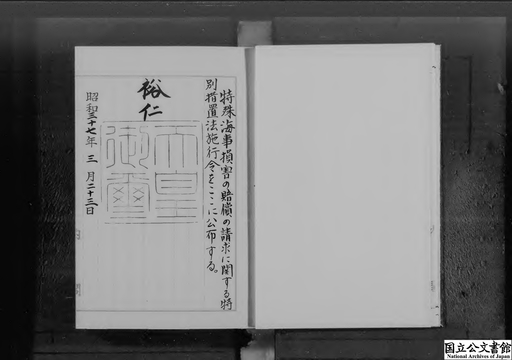 特殊海事損害の賠償の請求に関する特
別措置法施行令をここに公布する。
裕仁
天皇
御璽
昭和三十七年三月二十三日
国立公文書館
National Archives of Japan